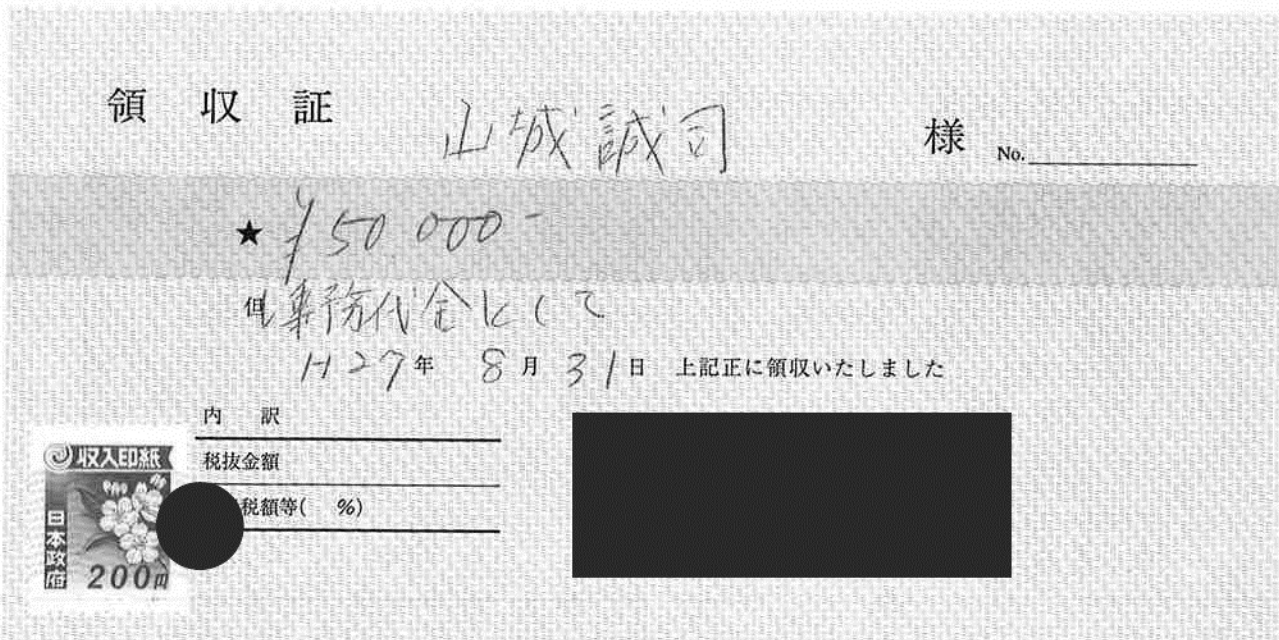 領収証 山城誠司 様 No.
★ ¥50,000-
但 事務代金として
H27年 8月31日 上記正に領収いたしました
内 訳
税抜金額
税額等( %)
収入印紙
日本政府
200円